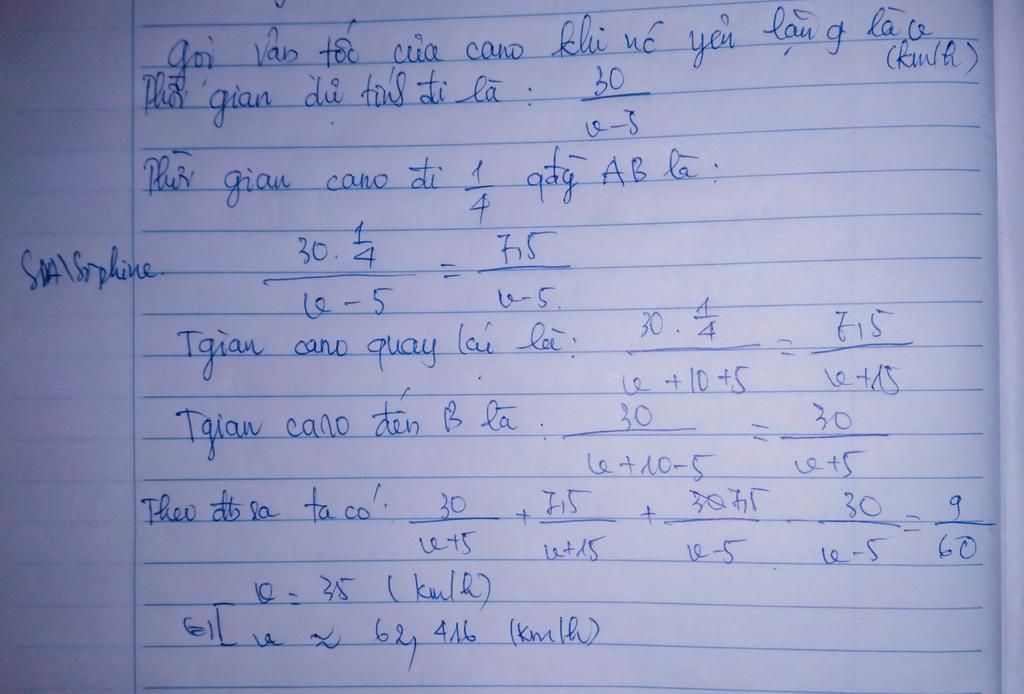 gọi vận tốc của cano khi nc yên lặng là v (km/h)
Thời gian dự tính đi là : 30/(v-5)
Thời gian cano đi 1/4 qđg AB là :
(30 . 1/4)/(v - 5) = 7,5/(v-5)
Tgian cano quay lại là: (30 . 1/4)/(v +10 +5) = 7,5/(v+15)
Tgian cano đến B là : 30/(v+10-5) = 30/(v+5)
Theo đb ra ta có : 30/(v+5) + 7,5/(v+15) + 7,5/(v-5) - 30/(v-5) = 9/60
v = 35 (km/h)
v ≈ 62,416 (km/h)